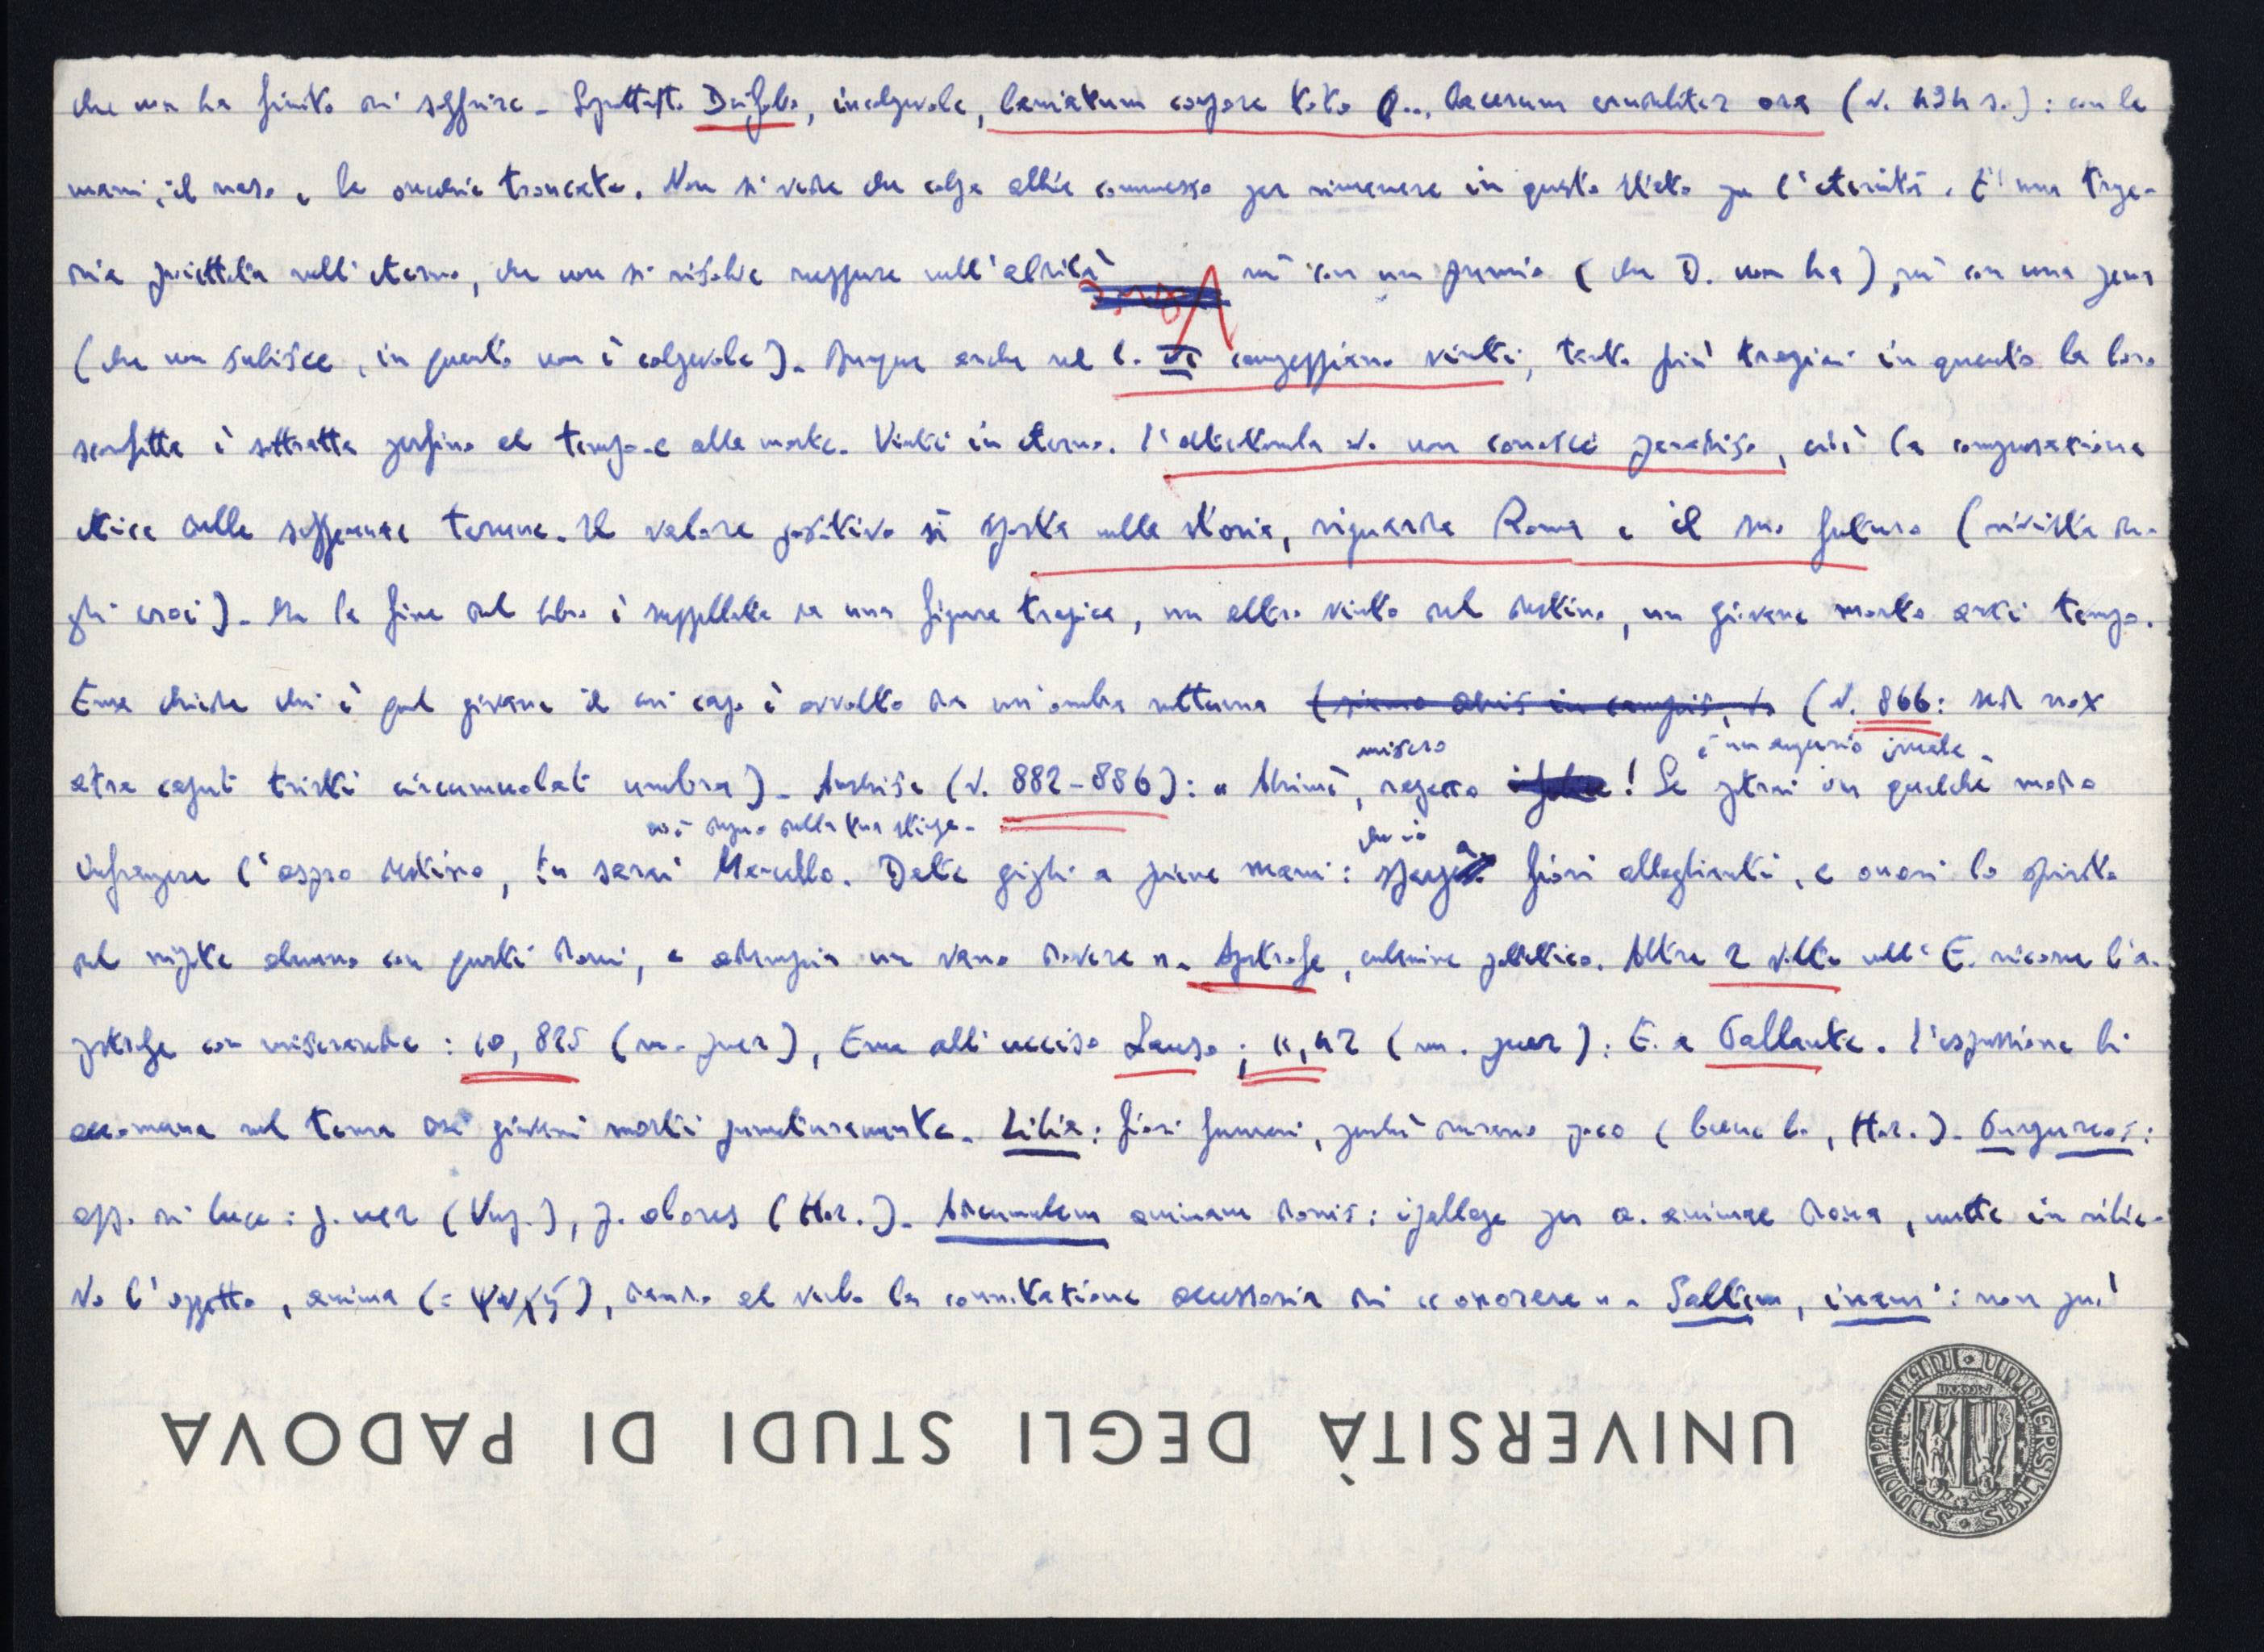 che non ha finito di soffrire. Soprattutto Deifobo, incolpevole, laniatum corpore toto D... lacerum crudeliter ora (v. 494 s.): con le
mani, il naso e le orecchie troncate. Non si vede che colpa abbia commesso per rimanere in questo stato per l'eternità. E' una trage-
dia proiettata nell'eterno, che non si risolve neppure nell'aldilà né con un premio (che D. non ha), né con una pena
(che non subisce, in quanto non è colpevole). Dunque anche nel l. VI campeggiano vinti, tanto più tragici in quanto la loro
sconfitta è sottratta persino al tempo e alla morte. Vinti in eterno. L'oltretomba v. non conosce paradiso, cioè la compensazione
etica delle sofferenze terrene. Il valore positivo si sposta nella storia, riguarda Roma e il suo futuro (rivista de-
gli eroi). Ma la fine del libro è suggellata da una figura tragica, un altro vinto dal destino, un giovane morto anzi tempo.
Enea chiede chi è quel giovane il cui capo è avvolto da un'ombra notturna (v. 866: sed nox
misero è un augurio irreale.
atra caput tristi circumvolat umbra). Anchise (v. 882-886): « Ahimè, ragazzo ! Se potrai in qualche modo
cioè degno della tua stirpe. ch'io
infrangere l'aspro destino, tu sarai Marcello. Date gigli a piene mani: sparga fiori abbaglianti, e onori lo spirito
del nipote almeno con questi doni, e adempia un vano dovere ». Apostrofe, culmine patetico. Altre 2 volte nell'E. ricorre l'a-
postrofe con miserande: 10, 825 (m. puer), Enea all'ucciso Lauso; 11, 42 (m. puer): E. a Pallante. L'espressione li
accomuna nel tema dei giovani morti prematuramente. Lilia: fiori funerei, perché durano poco (breve l., Hor.). Purpureos:
agg. di luce: p. ver (Verg.), p. olores (Hor.). Adcumulem animam donis: ipallage per a. animae dona, mette in rilie-
vo l'oggetto, anima (= ψυχή), dando al verbo la connotazione accessoria di « onorare ». Saltem, inani: non può
UNIVERSITÀ DEGLI STUDI DI PADOVA